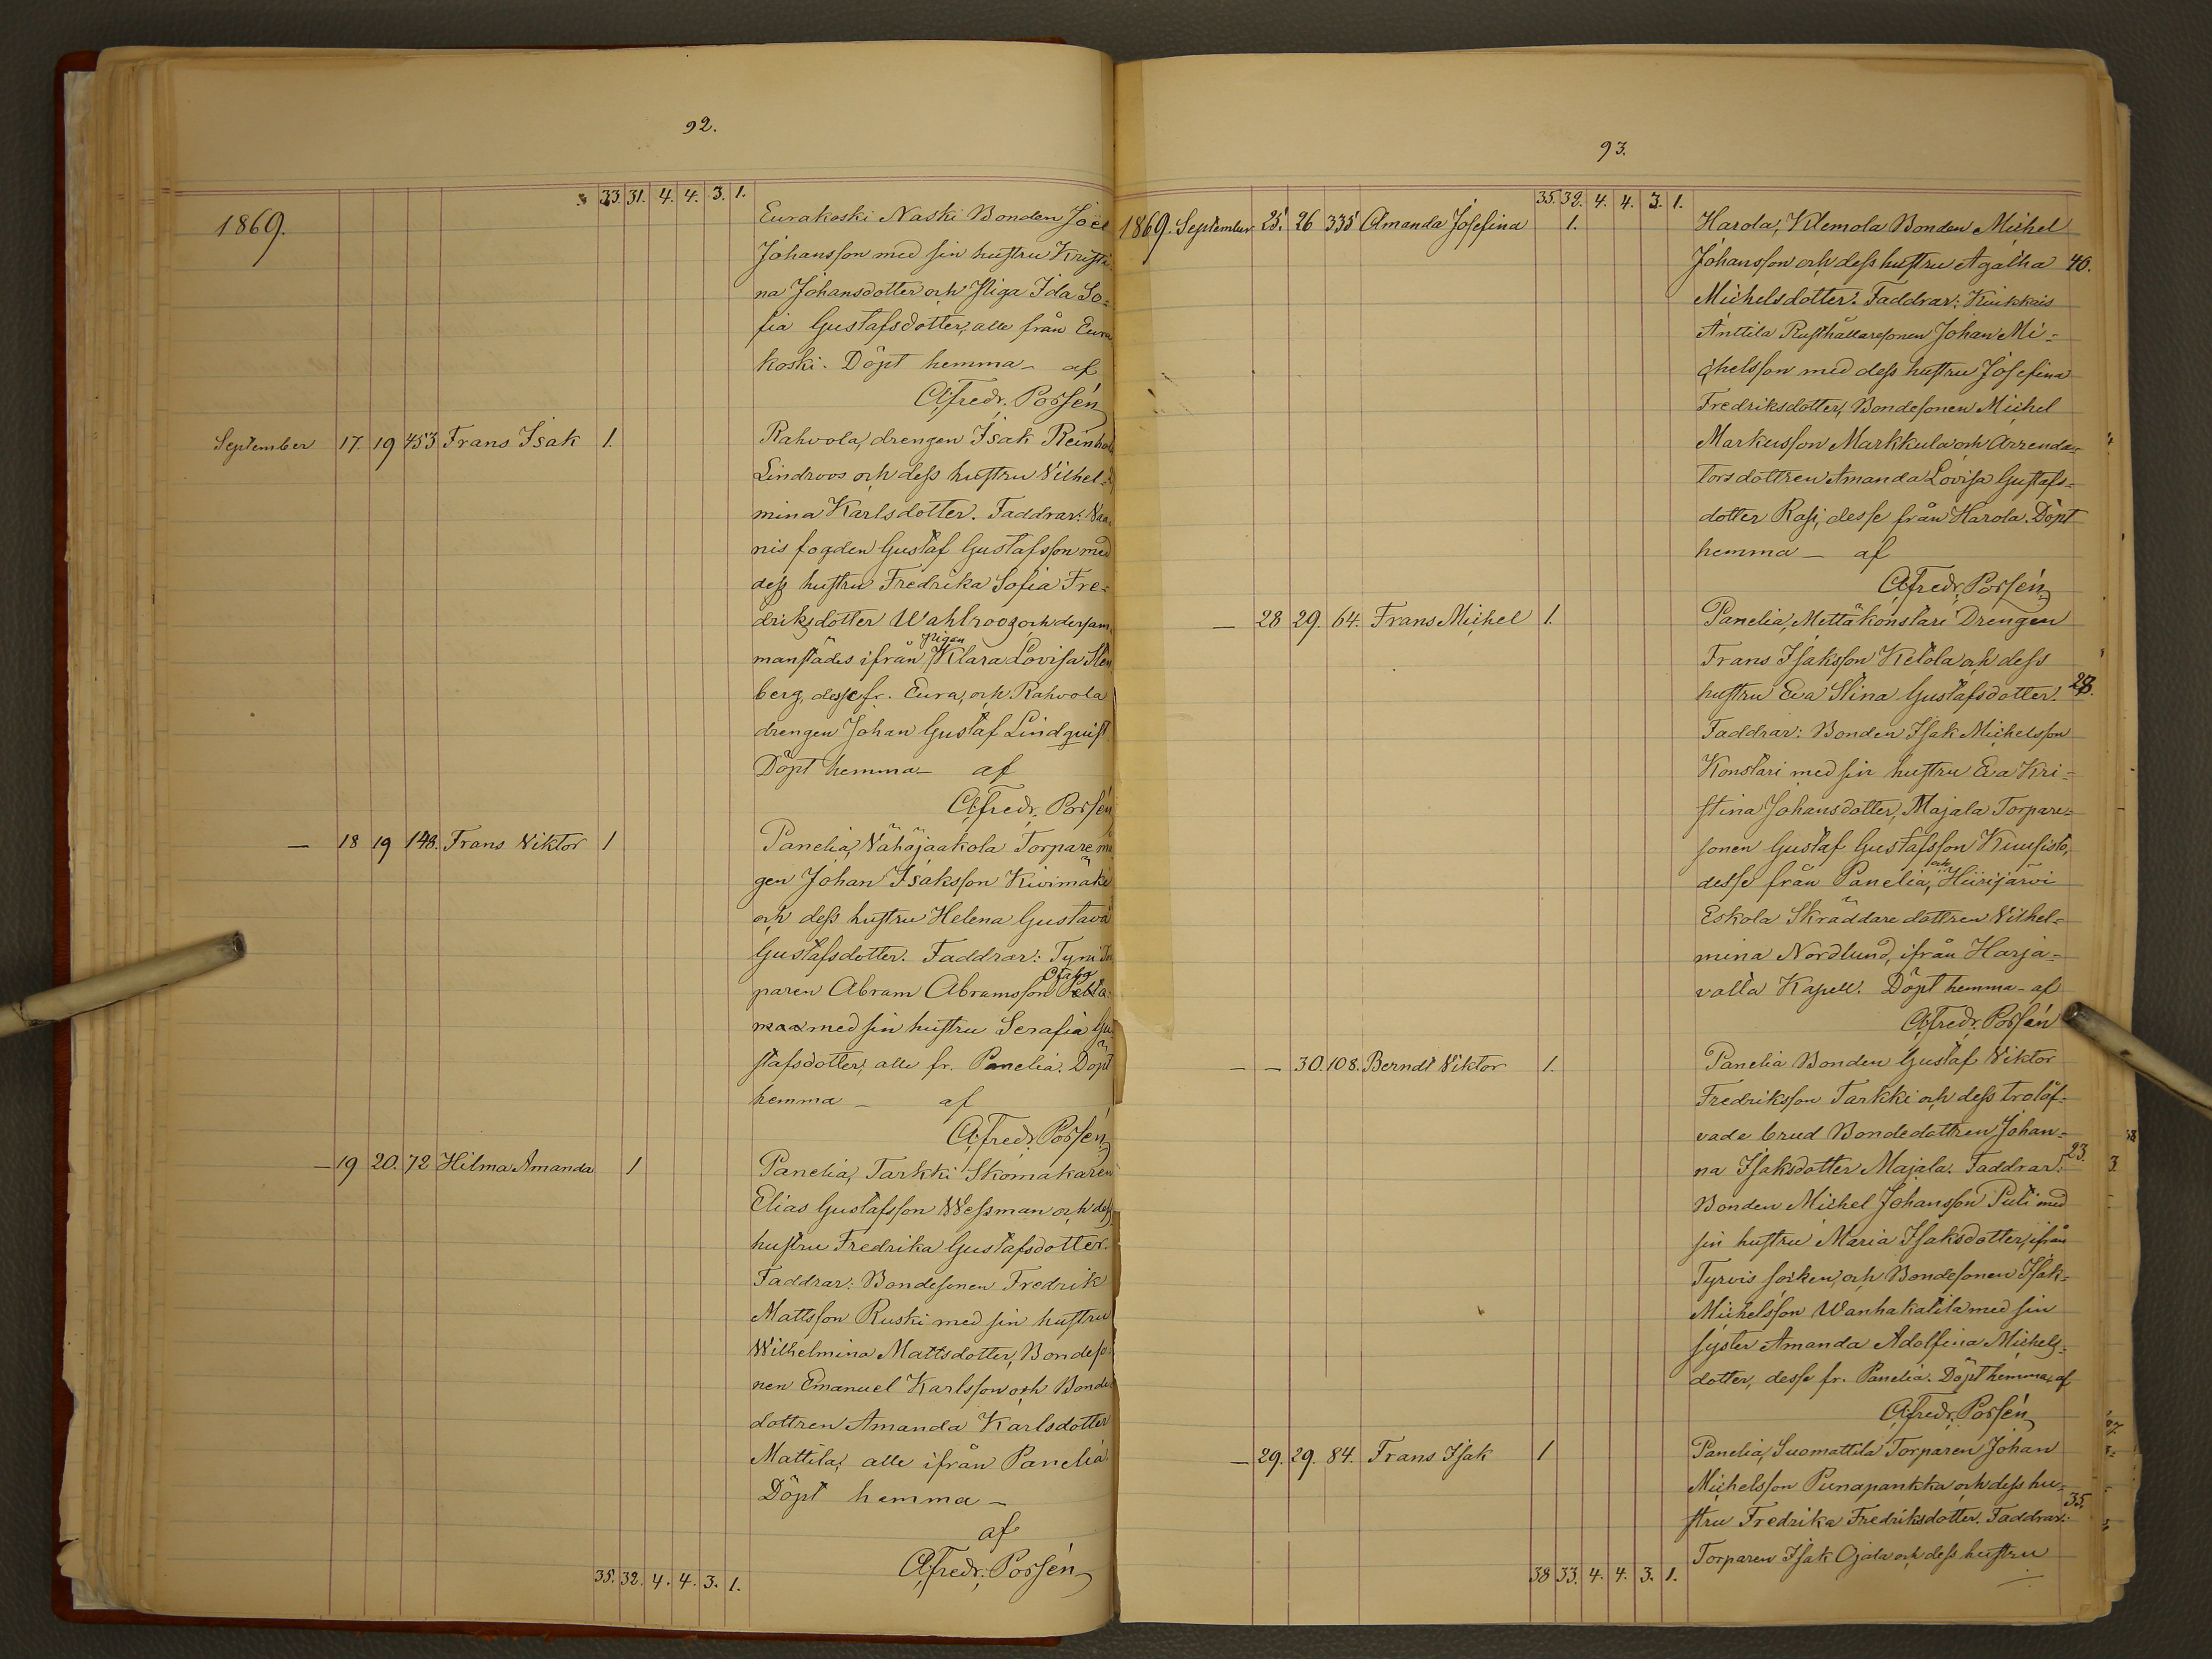 92.
33. 31. 4. 4. 3. 1.
1869.
Eurakoski Naski Bonden Joel
Johansson med sin hustru Kristi
na Johansdotter och Piga Ida So=
fia Gustafsdotter, alle från Eura
koski. Döpt hemma – af
Afredr. Porsén
September 17. 19 453 Frans Isak 1. Rahvola, drengen Isak Reinhold
Lindroos och dess hustru Vilhel=
mina Karlsdotter. Faddrar:
nis fogden Gustaf Gustafsson med
dess hustru Fredrika Sofia Fre=
driksdotter Wahlroos, och dersam
manstädes ifrån Pigan Klara Lovisa Sten
berg, desse fr. Eura, och Rahvola
drengen Johan Gustaf Lindquist
Döpt hemma – af
Afredr. Porsén
– 18 19 148. Frans Viktor 1 Panelia, Vähäjaakola Torpare
gen Johan Isaksson Kivimäki
och dess hustru Helena Gustava
Gustafsdotter. Faddrar:
paren Abram Abramsson
maa med sin hustru Serafia Gu
stafsdotter, alle fr. Panelia. Döpt
hemma – af
Afredr. Porsén
– 19 20. 72 Hilma Amanda 1 Panelia, Tarkki Skomakaren
Elias Gustafsson Wessman och dess
hustru Fredrika Gustafsdotter.
Faddrar: Bondesonen Fredrik
Mattsson Ruski med sin hustru
Wilhelmina Mattsdotter, Bondeso
nen Emanuel Karlsson och Bonde
dottren Amanda Karlsdotter
Mattila, alle ifrån Panelia.
Döpt hemma –
af
Afredr. Porsén
35. 32. 4. 4. 3. 1.
93.
35. 32. 4. 4. 3. 1.
1869. September 25. 26 335 Amanda Josefina 1. Harola, Klemola Bonden Michel
Johansson och dess hustru Agatha 40.
Michelsdotter. Faddrar: Kiukkais
Anttila Rusthållaresonen Johan Mi=
chelsson med dess hustru Josefina
Fredriksdotter, Bondesonen Michel
Markusson Markkula och Arrenda=
torsdottren Amanda Lovisa Gustafs=
dotter Rasi, desse från Harola. Döpt
hemma – af
Afredr. Porsén
– 28 29. 64. Frans Michel 1. Panelia, Mettäkonstari Drengen
Frans Isaksson Ketola och dess
hustru Eva Stina Gustafsdotter.
Faddrar: Bonden Isak Michelsson
Konstari med sin hustru Eva Kri=
stina Johansdotter, Majala Torpare=
sonen Gustaf Gustafsson Kuusisto,
desse från Panelia, och Hiirijärvi
Eskola Skräddare dottren Vilhel=
mina Nordlund, ifrån Harja=
valla Kapell. Döpt hemma – af
Afredr. Porsén
– – 30. 108. Berndt Viktor 1. Panelia Bonden Gustaf Viktor
Fredriksson Tarkki och dess trolof=
vade brud Bondedottren Johan=
na Isaksdotter Majala. Faddrar: 23.
Bonden Michel Johansson Puti med
sin hustru Maria Isaksdotter, ifrån
Tyrvis socken, och Bondesonen Isak
Michelsson Wanhakatila med sin
syster Amanda Adolfina Michels=
dotter, desse fr. Panelia. Döpt hemma, af
Afredr. Porsén
– 29. 29. 84. Frans Isak 1 Panelia, Suomattila Torparen Johan
Michelsson Punapankka och dess hu=
stru Fredrika Fredriksdotter. Faddrar: 35.
Torparen Isak Ojala och dess hustru
38 33. 4. 4. 3. 1.